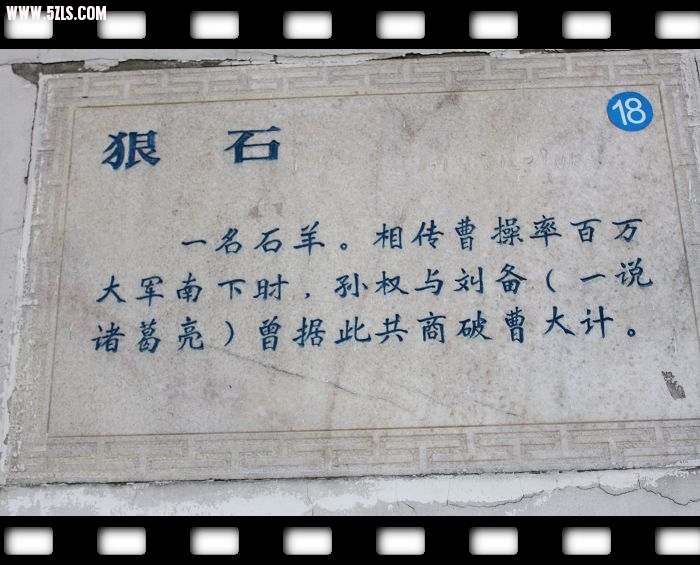 WWW.5ZLS.COM
18
狠 石
一名石羊。相传曹操率百万
大军南下时，孙权与刘备（一说
诸葛亮）曾据此共商破曹大计。